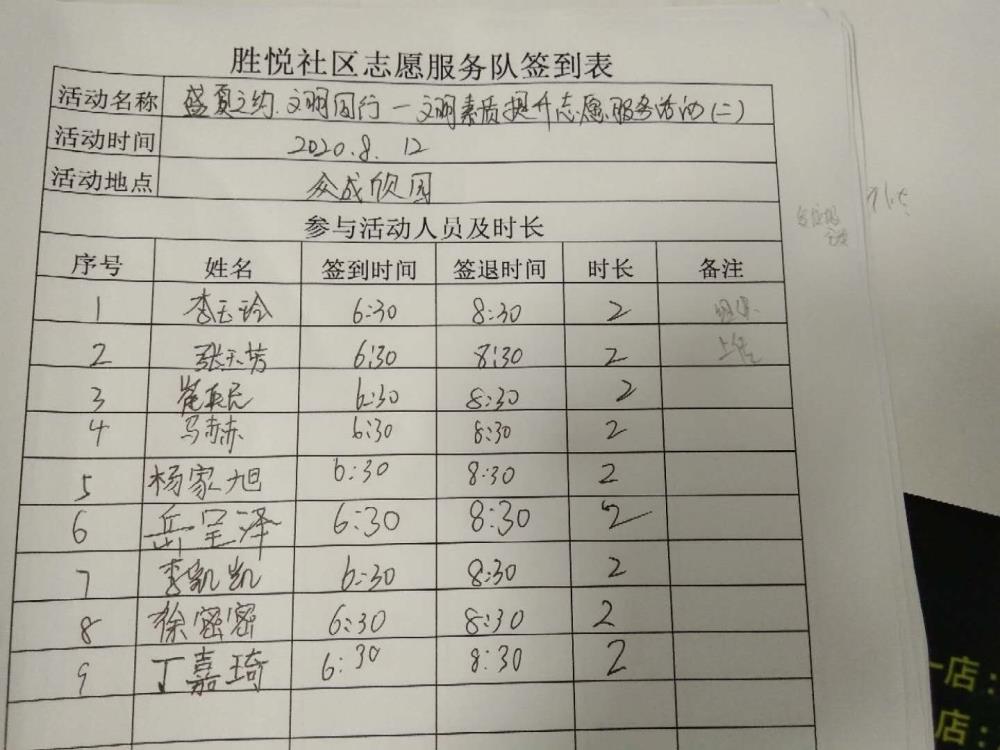 胜悦社区志愿服务队签到表
活动名称 盛夏之约.文明同行一文明素质提升志愿服务活动(二)
活动时间 2020.8.12
活动地点 众成欣园
参与活动人员及时长
序号 姓名 签到时间 签退时间 时长 备注
1 李玉玲 6:30 8:30 2 组织
2 张玉芳 6:30 8:30 2 上传
3 崔英民 6:30 8:30 2
4 马赤赤 6:30 8:30 2
5 杨家旭 6:30 8:30 2
6 岳呈泽 6:30 8:30 2
7 李凯凯 6:30 8:30 2
8 徐密密 6:30 8:30 2
9 丁嘉琦 6:30 8:30 2
一店:
店: